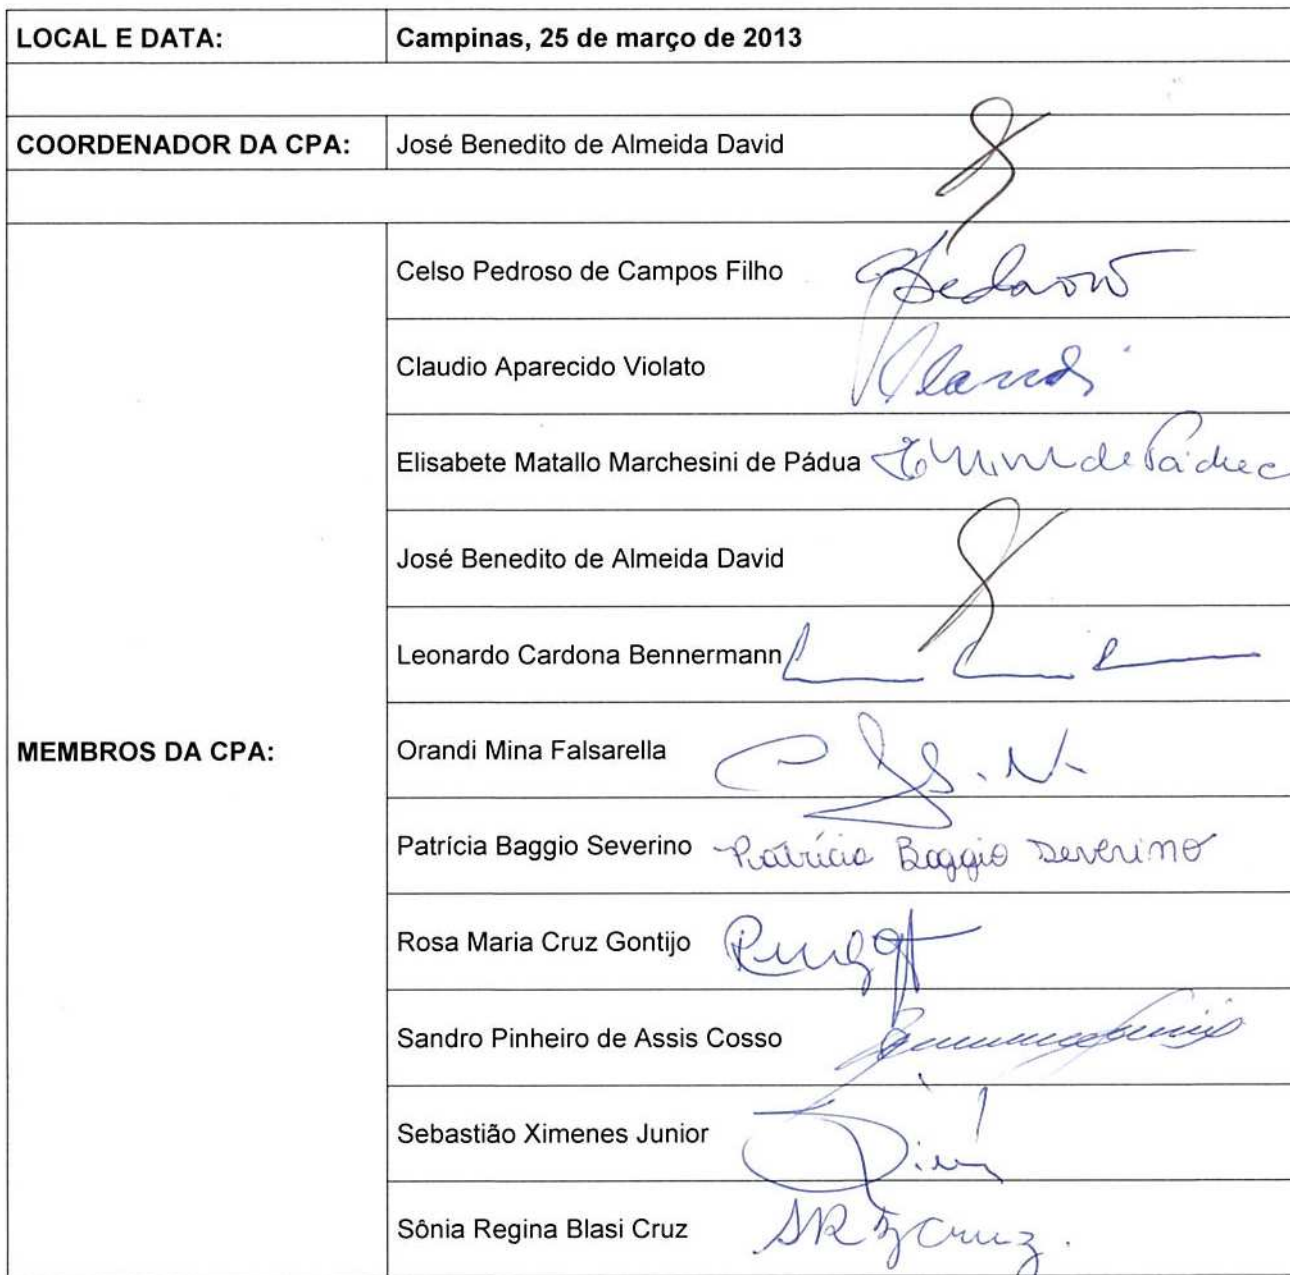 LOCAL E DATA: Campinas, 25 de março de 2013
COORDENADOR DA CPA: José Benedito de Almeida David
Celso Pedroso de Campos Filho
Claudio Aparecido Violato
Elisabete Matallo Marchesini de Pádua de Pádua
José Benedito de Almeida David
Leonardo Cardona Bennermann
MEMBROS DA CPA: Orandi Mina Falsarella
Patrícia Baggio Severino Patrícia Baggio Severino
Rosa Maria Cruz Gontijo
Sandro Pinheiro de Assis Cosso
Sebastião Ximenes Junior
Sônia Regina Blasi Cruz SRBCruz.